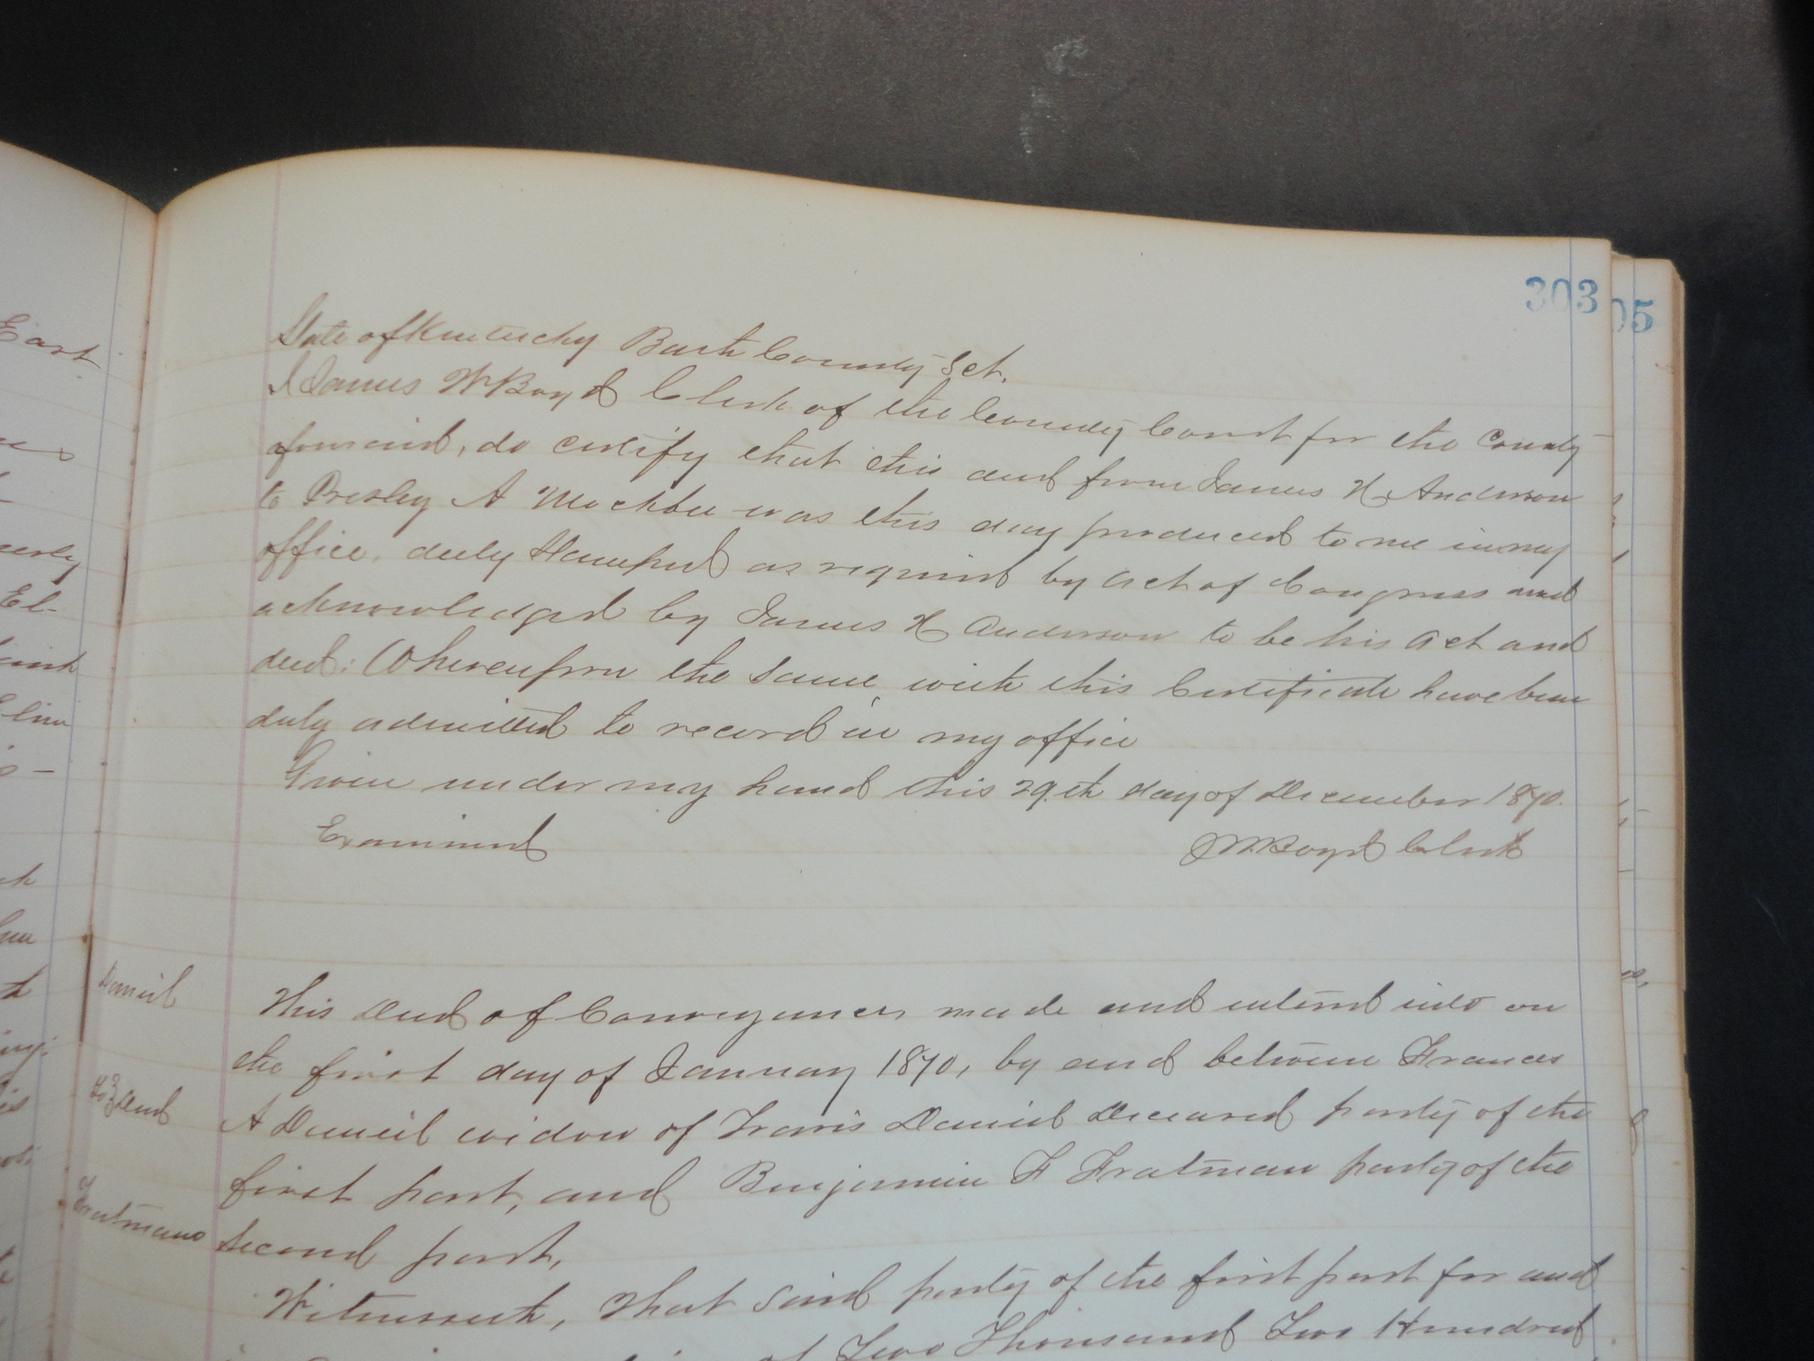 East
303
05
State of Kentucky Bath County Sct.
I James W Boyd Clerk of the County Court for the County
aforesaid, do certify that this deed from James H Anderson
to Presley A Mockbee was this day produced to me in my
office, duly Stamped as required by act of Congress and
acknowledged by James H Anderson to be his act and
deed: Whereupon the same, with this Certificate have been
duly admitted to record in my office
Given under my hand this 29th day of December 1870.
Examined
JW Boyd Clerk
Daniel
To Deed
Fratmans
This Deed of Conveyances made and entered into on
the first day of January 1870, by and between Frances
A Daniel widow of Travis Daniel Deceased party of the
first part, and Benjamin F Fratman party of the
second part,
Witnesseth, That said party of the first part for and
of Two Thousand Two Hundred